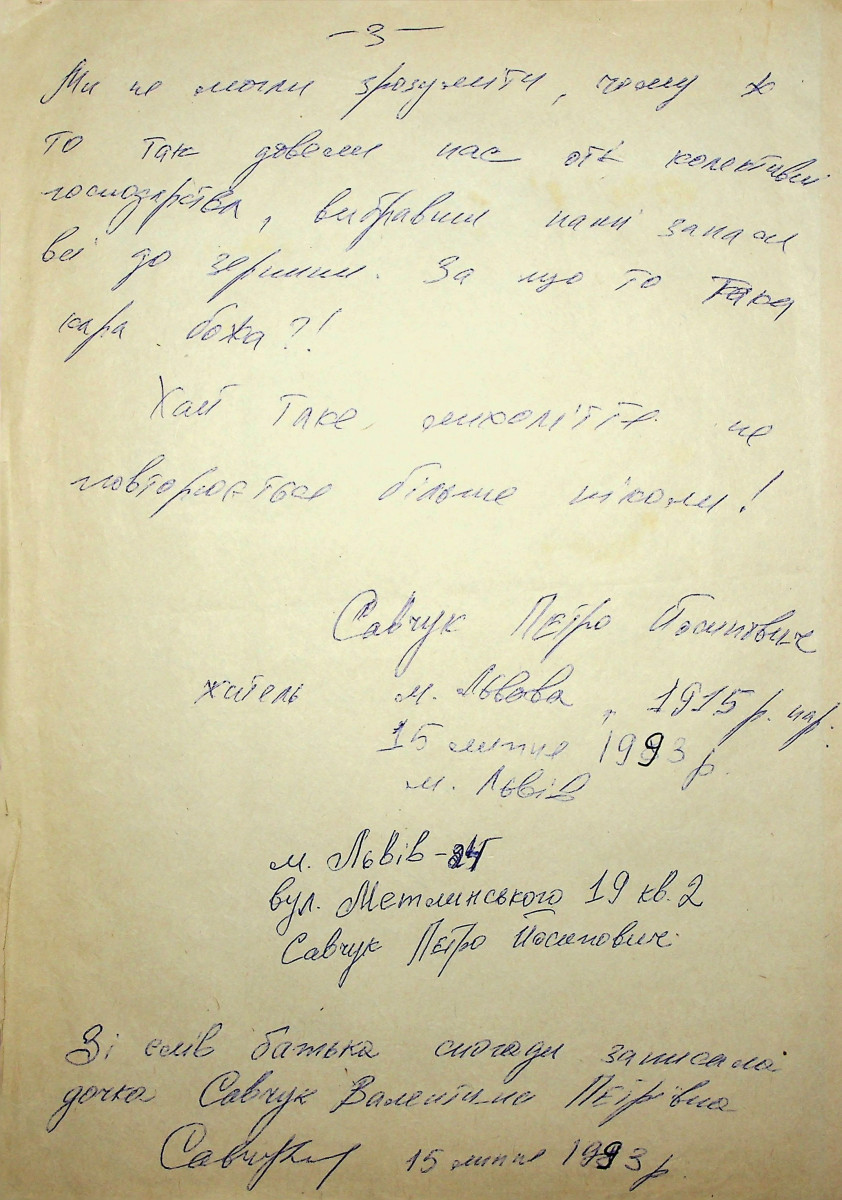 – 3 –
Ми не могли зрозуміти, чому ж
то так довели нас оті колективні
господарства, вибравши наші запаси
всі до зернини. За що то така
кара божа?!
Хай таке лихоліття не
повторюється більше ніколи!
Савчук Петро Йосипович
житель м. Львова, 1915 р. нар.
15 липня 1993 р.
м. Львів
м. Львів-24
вул. Метлинського 19 кв. 2
Савчук Петро Йосипович
Зі слів батька спогади записала
дочка Савчук Валентина Петрівна
15 липня 1993 р.